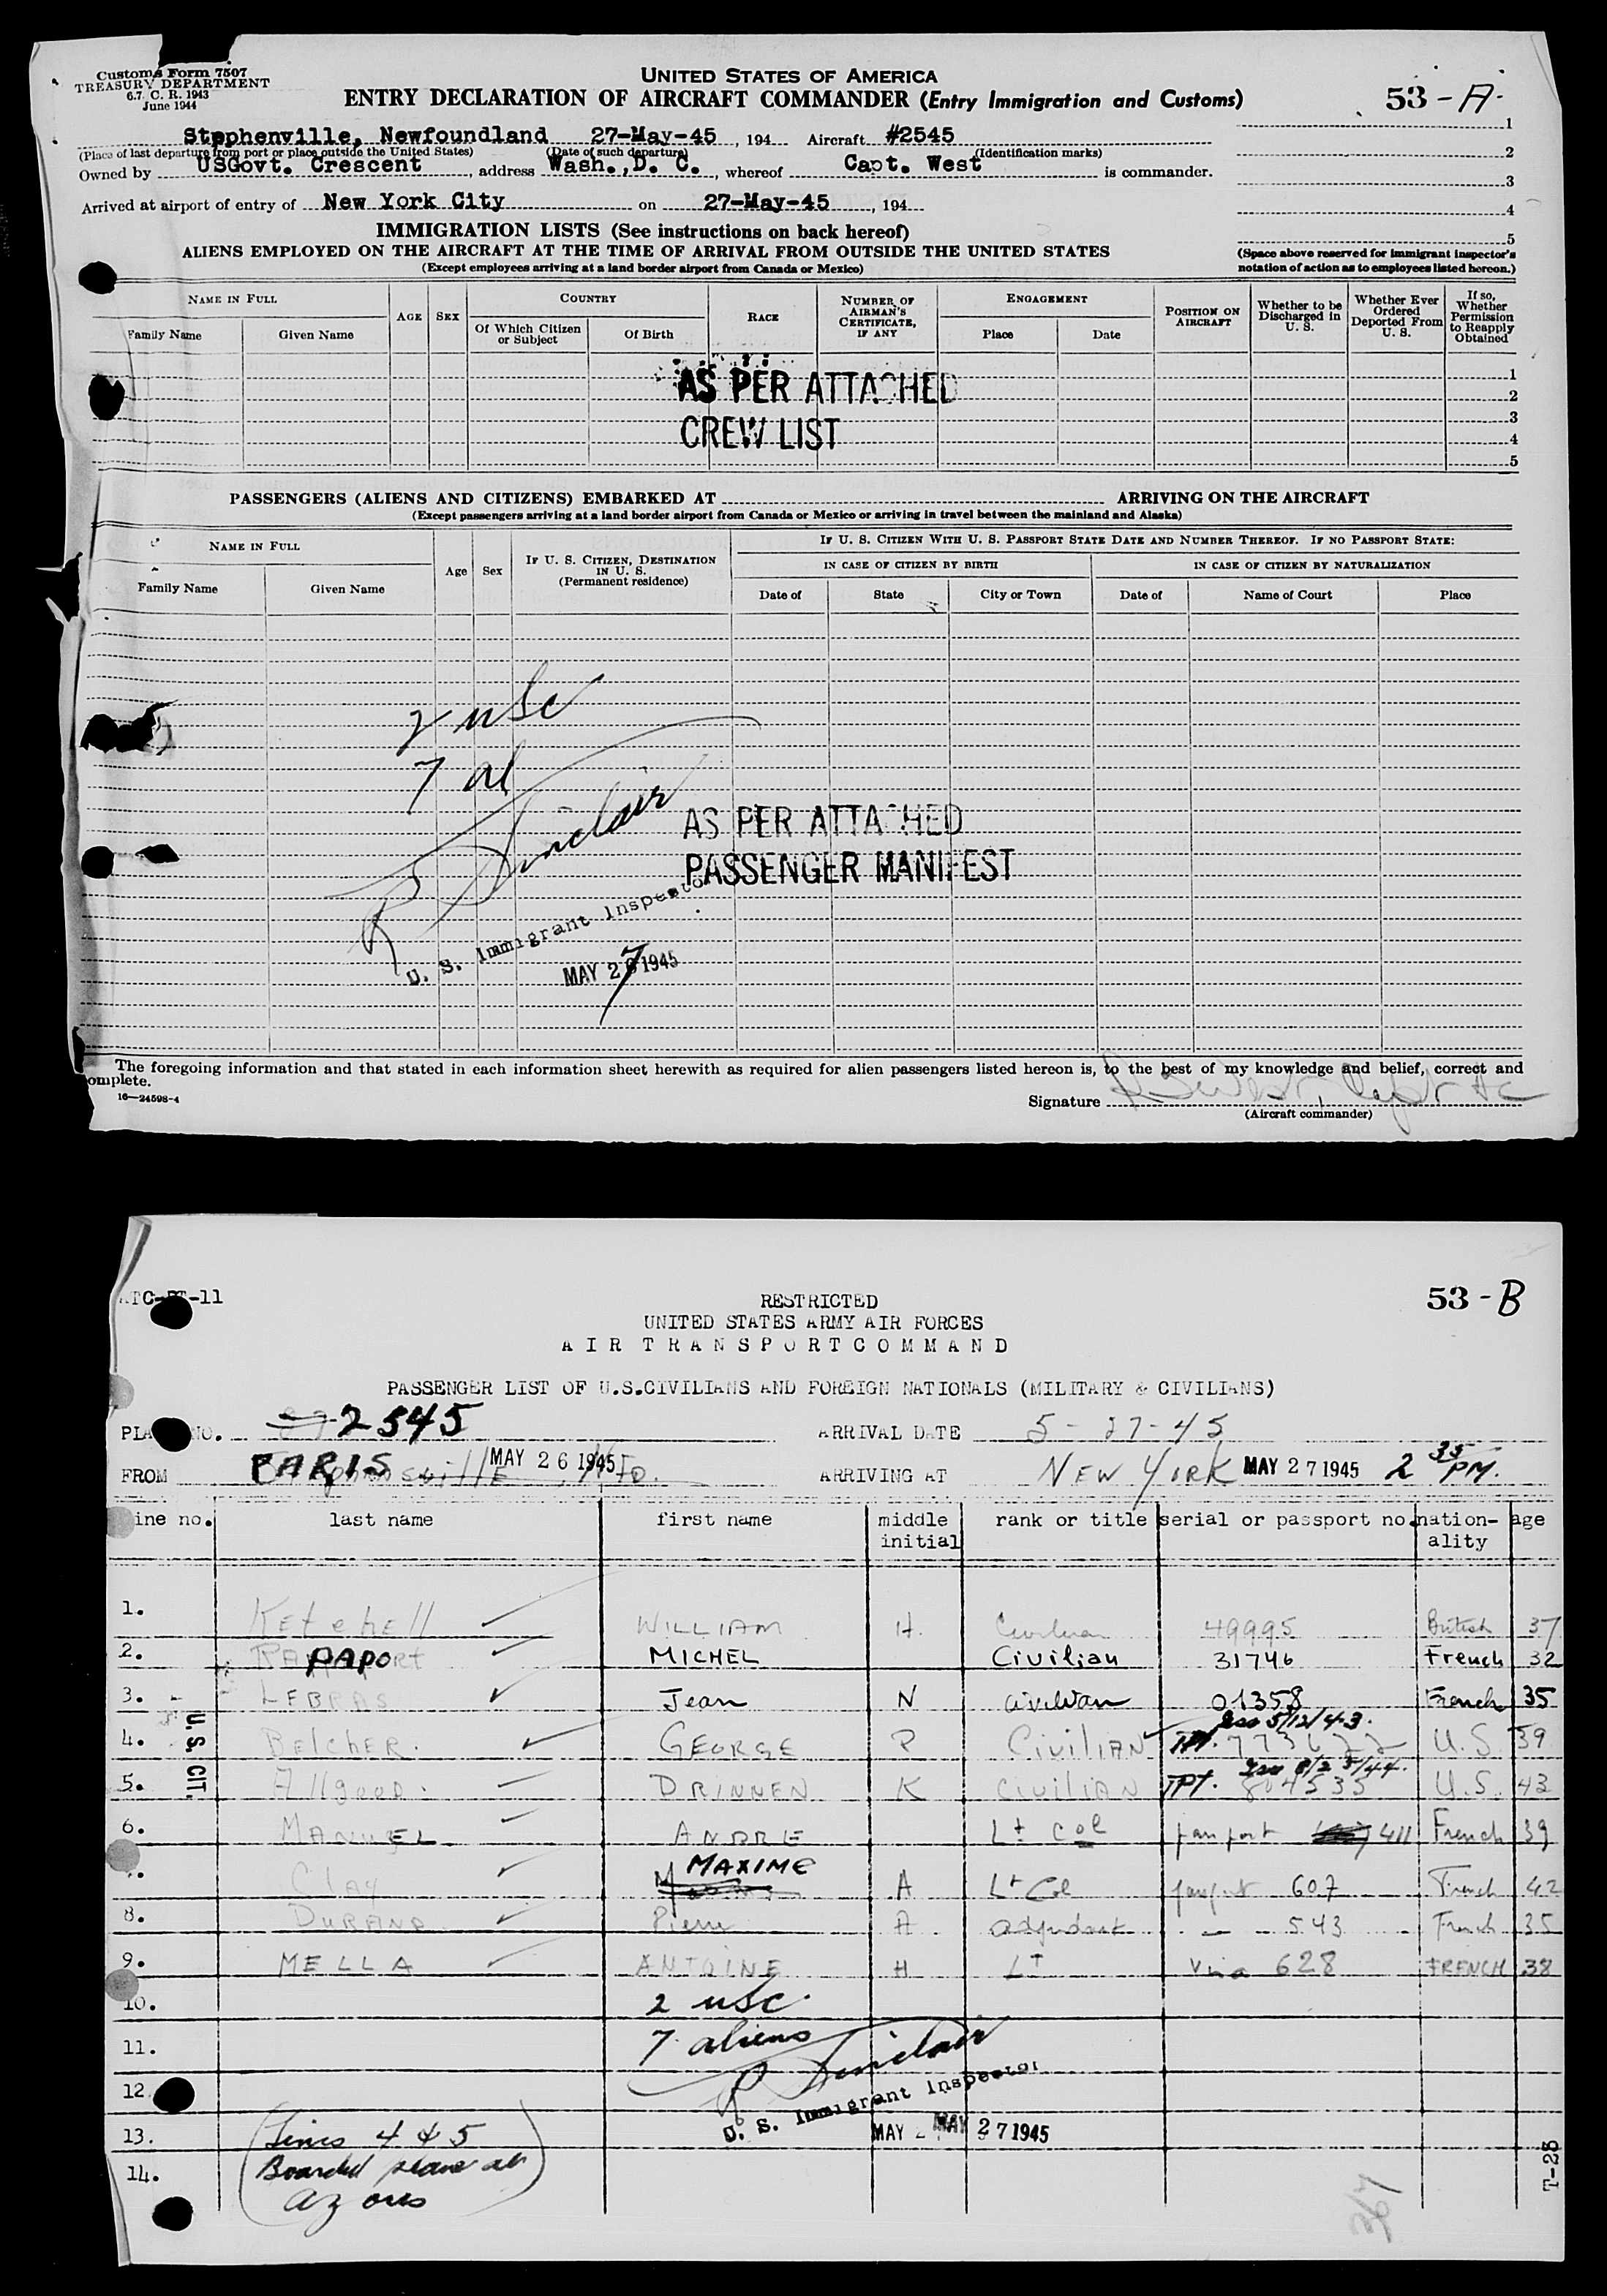 Customs Form 7507
TREASURY DEPARTMENT
6.7. C. R. 1943
June 1944
UNITED STATES OF AMERICA
ENTRY DECLARATION OF AIRCRAFT COMMANDER (Entry Immigration and Customs)
53 -A-
Stephenville, Newfoundland 27-May-45, 194 Aircraft #2545
(Place of last departure from port or place outside the United States) (Date of such departure) (Identification marks)
Owned by USGovt. Crescent, address Wash., D. C., whereof Capt. West is commander.
Arrived at airport of entry of New York City on 27-May-45, 194
1
2
3
4
5
(Space above reserved for immigrant inspector's
notation of action as to employees listed hereon.)
IMMIGRATION LISTS (See instructions on back hereof)
ALIENS EMPLOYED ON THE AIRCRAFT AT THE TIME OF ARRIVAL FROM OUTSIDE THE UNITED STATES
(Except employees arriving at a land border airport from Canada or Mexico)
NAME IN FULL
Family Name Given Name
AGE SEX
COUNTRY
Of Which Citizen or Subject Of Birth
RACE
NUMBER OF AIRMAN'S CERTIFICATE, IF ANY
ENGAGEMENT
Place Date
POSITION ON AIRCRAFT
Whether to be Discharged in U. S.
Whether Ever Ordered Deported From U. S.
If so, Whether Permission to Reapply Obtained
1
2
3
4
5
AS PER ATTACHED
CREW LIST
PASSENGERS (ALIENS AND CITIZENS) EMBARKED AT ARRIVING ON THE AIRCRAFT
(Except passengers arriving at a land border airport from Canada or Mexico or arriving in travel between the mainland and Alaska)
NAME IN FULL
Family Name Given Name
Age Sex
IF U. S. CITIZEN, DESTINATION IN U. S. (Permanent residence)
IF U. S. CITIZEN WITH U. S. PASSPORT STATE DATE AND NUMBER THEREOF. IF NO PASSPORT STATE:
IN CASE OF CITIZEN BY BIRTH IN CASE OF CITIZEN BY NATURALIZATION
Date of State City or Town Date of Name of Court Place
2 usc
7 al
R Sinclair
AS PER ATTACHED
PASSENGER MANIFEST
U. S. Immigrant Inspector
MAY 27 1945
The foregoing information and that stated in each information sheet herewith as required for alien passengers listed hereon is, to the best of my knowledge and belief, correct and
omplete.
16—24598-4
Signature
(Aircraft commander)
-11
53 -B
RESTRICTED
UNITED STATES ARMY AIR FORCES
A I R T R A N S P O R T C O M M A N D
PASSENGER LIST OF U.S.CIVILIANS AND FOREIGN NATIONALS (MILITARY & CIVILIANS)
NO. 2545 ARRIVAL DATE 5-27-45
FROM PARIS MAY 26 1945 ARRIVING AT NEW YORK MAY 27 1945 2 35 PM.
ine no. last name first name middle initial rank or title serial or passport no. nation-ality age
1. Ketchell WILLIAM H. Civilian 49995 British 37
2. PAPO MICHEL Civilian 31746 French 32
3. LEBRAS Jean N civilian 01358 French 35
Iss 5/12/43.
4. Belcher. GEORGE P Civilian U.S. 39
5. Allgood. DRINNEN K Civilian PPt. 804535 U.S. 43
U.S. CIT.
6. MANUEL ANDRE Lt Col passport 411 French 39
Clay MAXIME A Lt Col passport 607 French 42
8. DURAND Pierre A adjudant 543 French 35
9. MELLA ANTOINE H Lt Visa 628 FRENCH 38
10. 2 usc.
11. 7 aliens
R Sinclair
12.
U. S. Immigrant Inspector
13. MAY 27 1945
14.
(Lines 4 & 5
Boarded plane at
Azores)
367
T-25